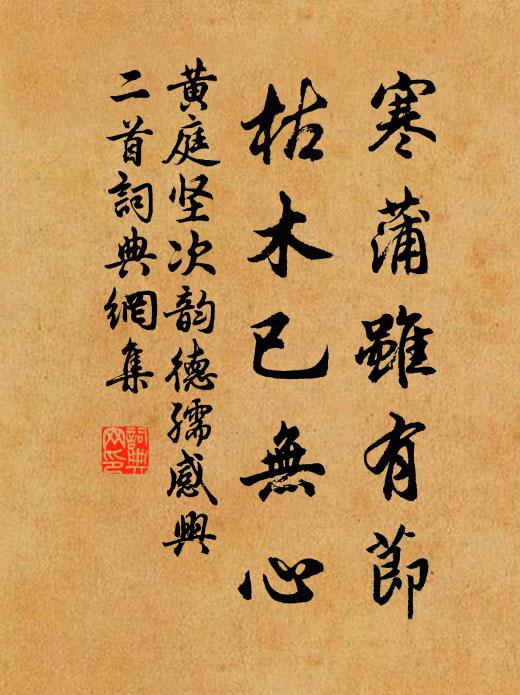 寒蒲雖有節
枯木已無心
黃庭坚次韵德孺感興
二首詞典網集
詞典
网印